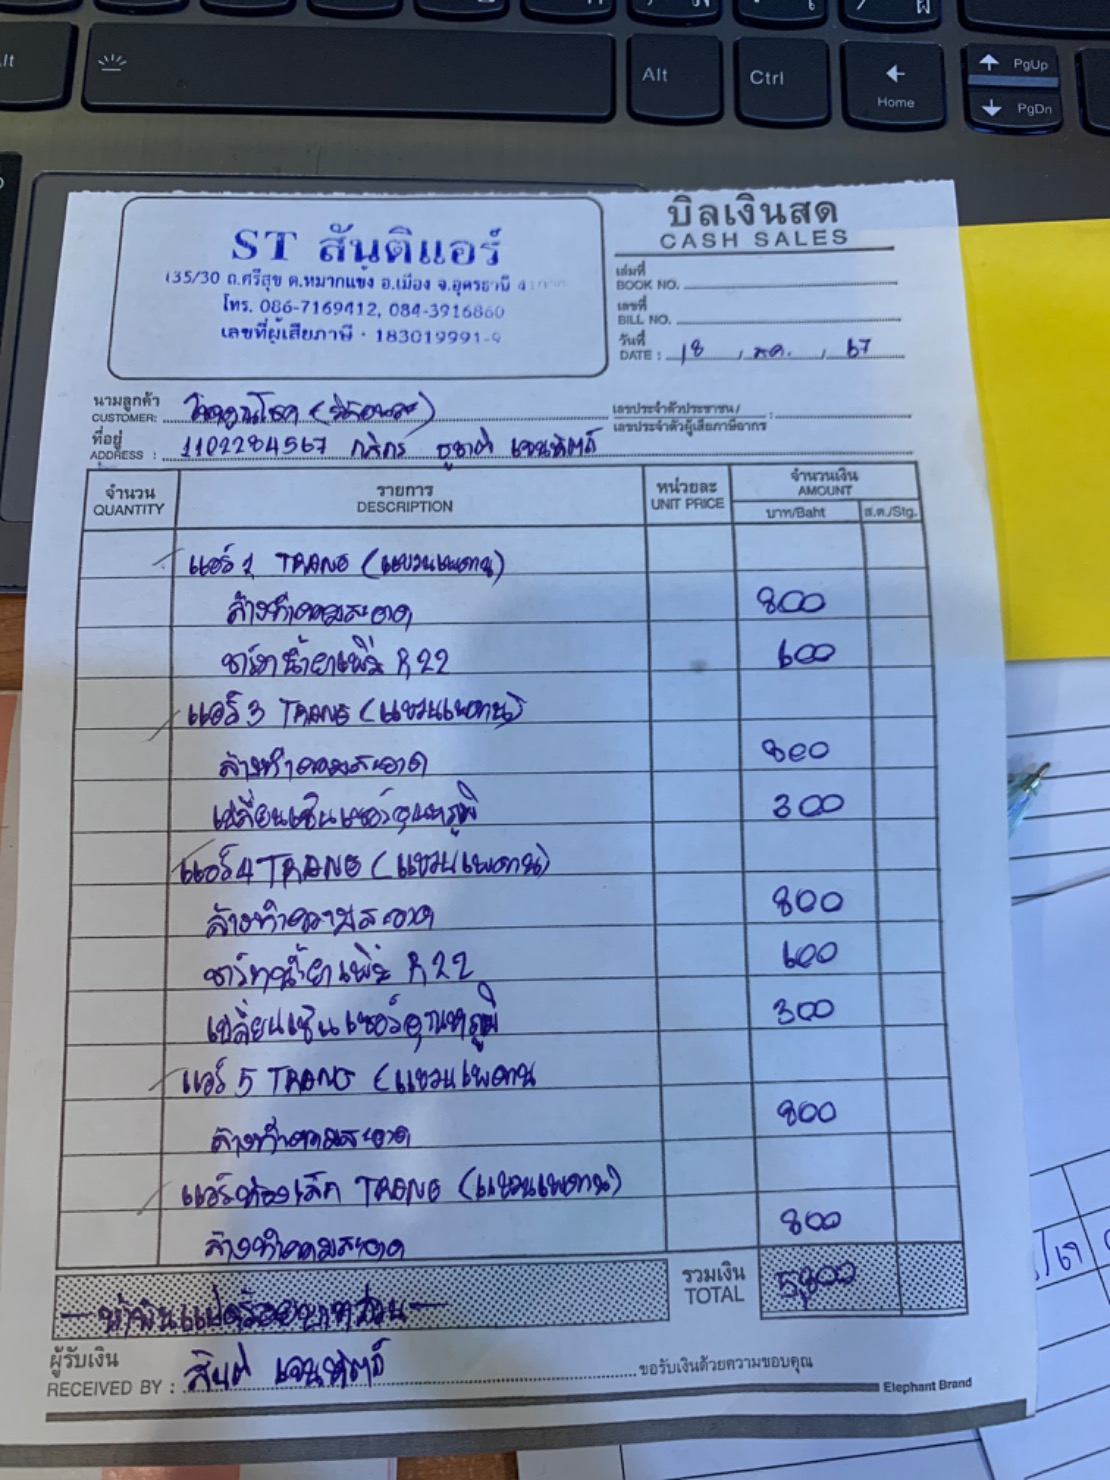 Alt
PgUp
Ctrl
Home
PgDn
บิลเงินสด
CASH SALES
ST สันติแอร์
135/30 ถ.ศรีสุข ต.หมากแข้ง อ.เมือง จ.อุดรธานี
โทร. 086-7169412, 084-3916860
เลขที่ผู้เสียภาษี · 183019991-9
เล่มที่
BOOK NO.
เลขที่
BILL NO.
วันที่
DATE : 18 / / 67
นามลูกค้า
CUSTOMER:
เลขประจำตัวประชาชน/
เลขประจำตัวผู้เสียภาษีอากร :
ที่อยู่
ADDRESS : 1102284567 กสิกร
จำนวน
QUANTITY
รายการ
DESCRIPTION
หน่วยละ
UNIT PRICE
จำนวนเงิน
AMOUNT
บาท/Baht
ส.ต./Stg.
แอร์ 1 TRANE (แขวนเพดาน)
ล้างทำความสะอาด 800
ชาร์ทน้ำยาเพิ่ม R22 600
แอร์ 3 TRANE (แขวนเพดาน)
ล้างทำความสะอาด 800
เปลี่ยนเซ็นเซอร์อุณหภูมิ 300
แอร์ 4 TRANE (แขวนเพดาน)
ล้างทำความสะอาด 800
ชาร์ทน้ำยาเพิ่ม R22 600
เปลี่ยนเซ็นเซอร์อุณหภูมิ 300
แอร์ 5 TRANE (แขวนเพดาน
ล้างทำความสะอาด 800
แอร์ห้องเล็ก TRANE (แขวนเพดาน)
ล้างทำความสะอาด 800
รวมเงิน
TOTAL 5,800
ผู้รับเงิน
RECEIVED BY :
ขอรับเงินด้วยความขอบคุณ
Elephant Brand